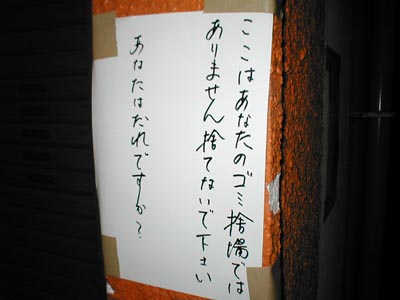 ここはあなたのゴミ捨場では
ありません捨てないで下さい
あなたはだれですか?